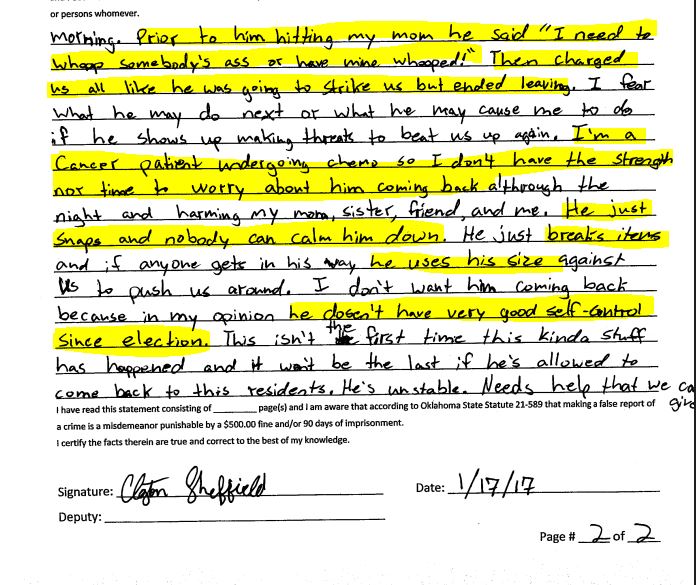 or persons whomever.
morning. Prior to him hitting my mom he said "I need to
whoop somebody's ass or have mine whooped!" Then charged
us all like he was going to strike us but ended leaving. I fear
what he may do next or what he may cause me to do
if he shows up making threats to beat us up again. I'm a
Cancer patient undergoing chemo so I don't have the strength
nor time to worry about him coming back althrough the
night and harming my mom, sister, friend, and me. He just
snaps and nobody can calm him down. He just breaks items
and if anyone gets in his way he uses his size against
us to push us around. I don't want him coming back
because in my opinion he doesn't have very good self-control
since election. This isn't the first time this kinda stuff
has happened and it won't be the last if he's allowed to
come back to this residents. He's unstable. Needs help that we ca
I have read this statement consisting of ________ page(s) and I am aware that according to Oklahoma State Statute 21-589 that making a false report of
a crime is a misdemeanor punishable by a $500.00 fine and/or 90 days of imprisonment.
I certify the facts therein are true and correct to the best of my knowledge.
Signature: Sheffield
Date: 1/17/17
Deputy:
Page # 2 of 2